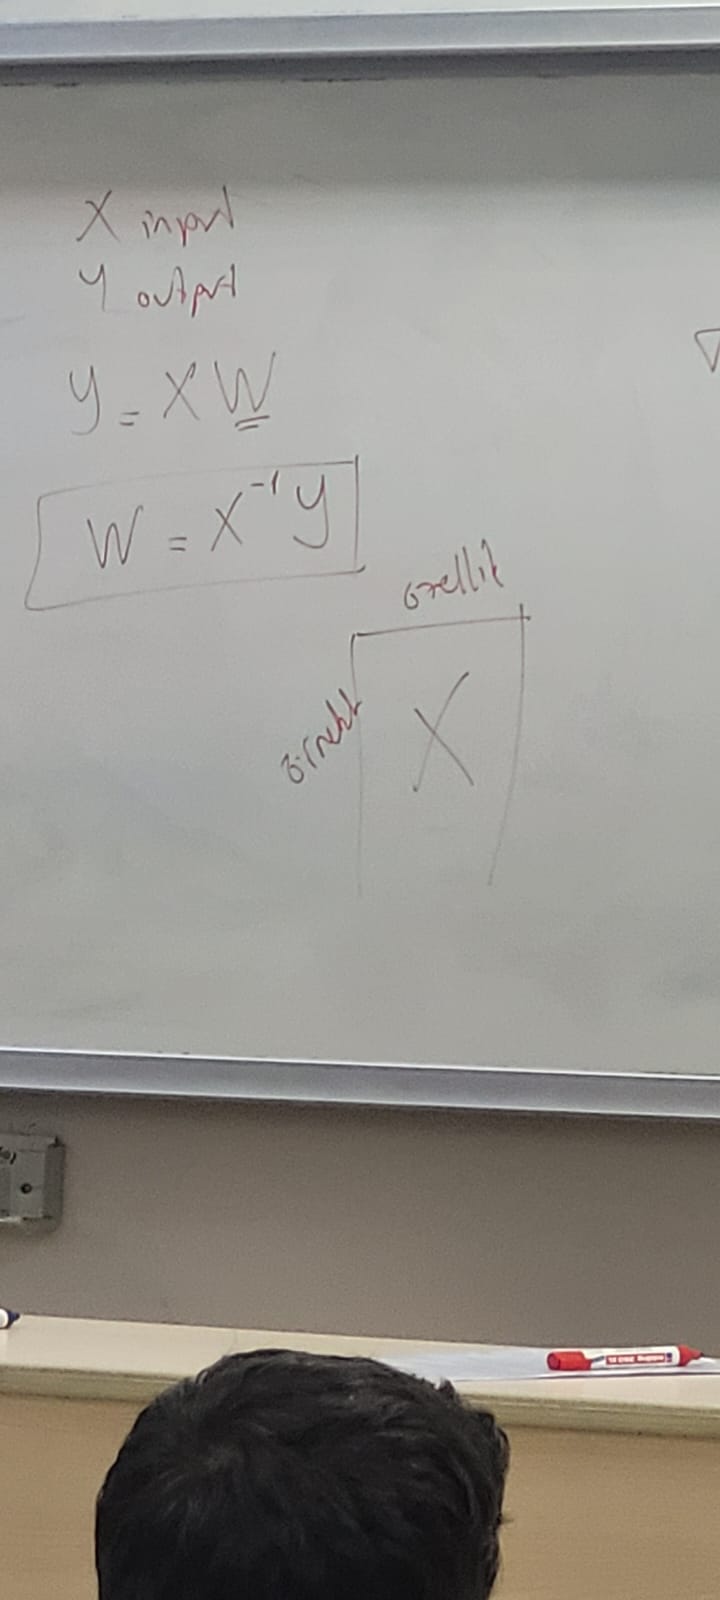 X input
Y output
y = XW
W = X⁻¹y
özellik
örnekler
X